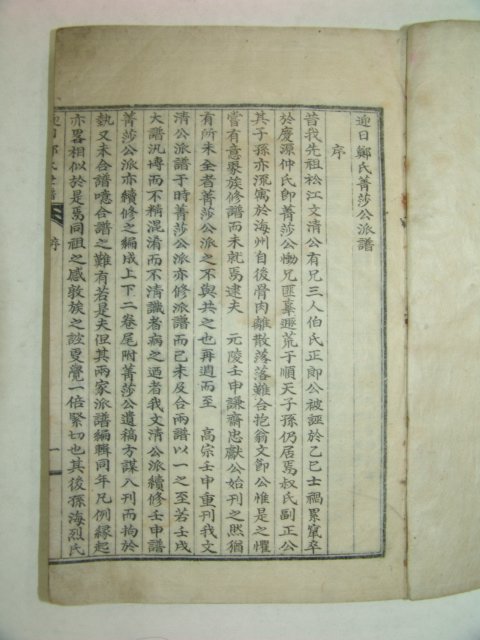 迎日鄭氏菁莎公派譜
序
昔我先祖松江文清公有兄三人伯氏正郎公被誣於乙巳士禍累竄卒
於慶源仲氏卽菁莎公慟兄匪辜遯荒于順天子孫仍居焉叔氏副正公
其子孫亦流寓於海州自後骨肉離散落落難合抱翁文節公惟是之懼
嘗有意聚族修譜而未就焉逮夫 元陵壬申謙齋忠獻公始刊之然猶
有所未全者菁莎公派之不與共之也再週而至 高宗壬申重刊我文
清公派譜于時菁莎公派亦修派譜而已未及合兩譜以一之至若壬戌
大譜汎博而不精混淆而不清識者病之迺者我文清公派續修壬申譜
菁莎公派亦續修之編成上下二卷尾附菁莎公遺稿方謀入刊而拘於
執又未合譜噫合譜之難有若是夫但其兩家派譜編輯同年凡例緣起
亦畧相似於是焉同祖之感敦族之誼更覺一倍緊切也其後孫海烈氏
迎日鄭氏 譜
序
一